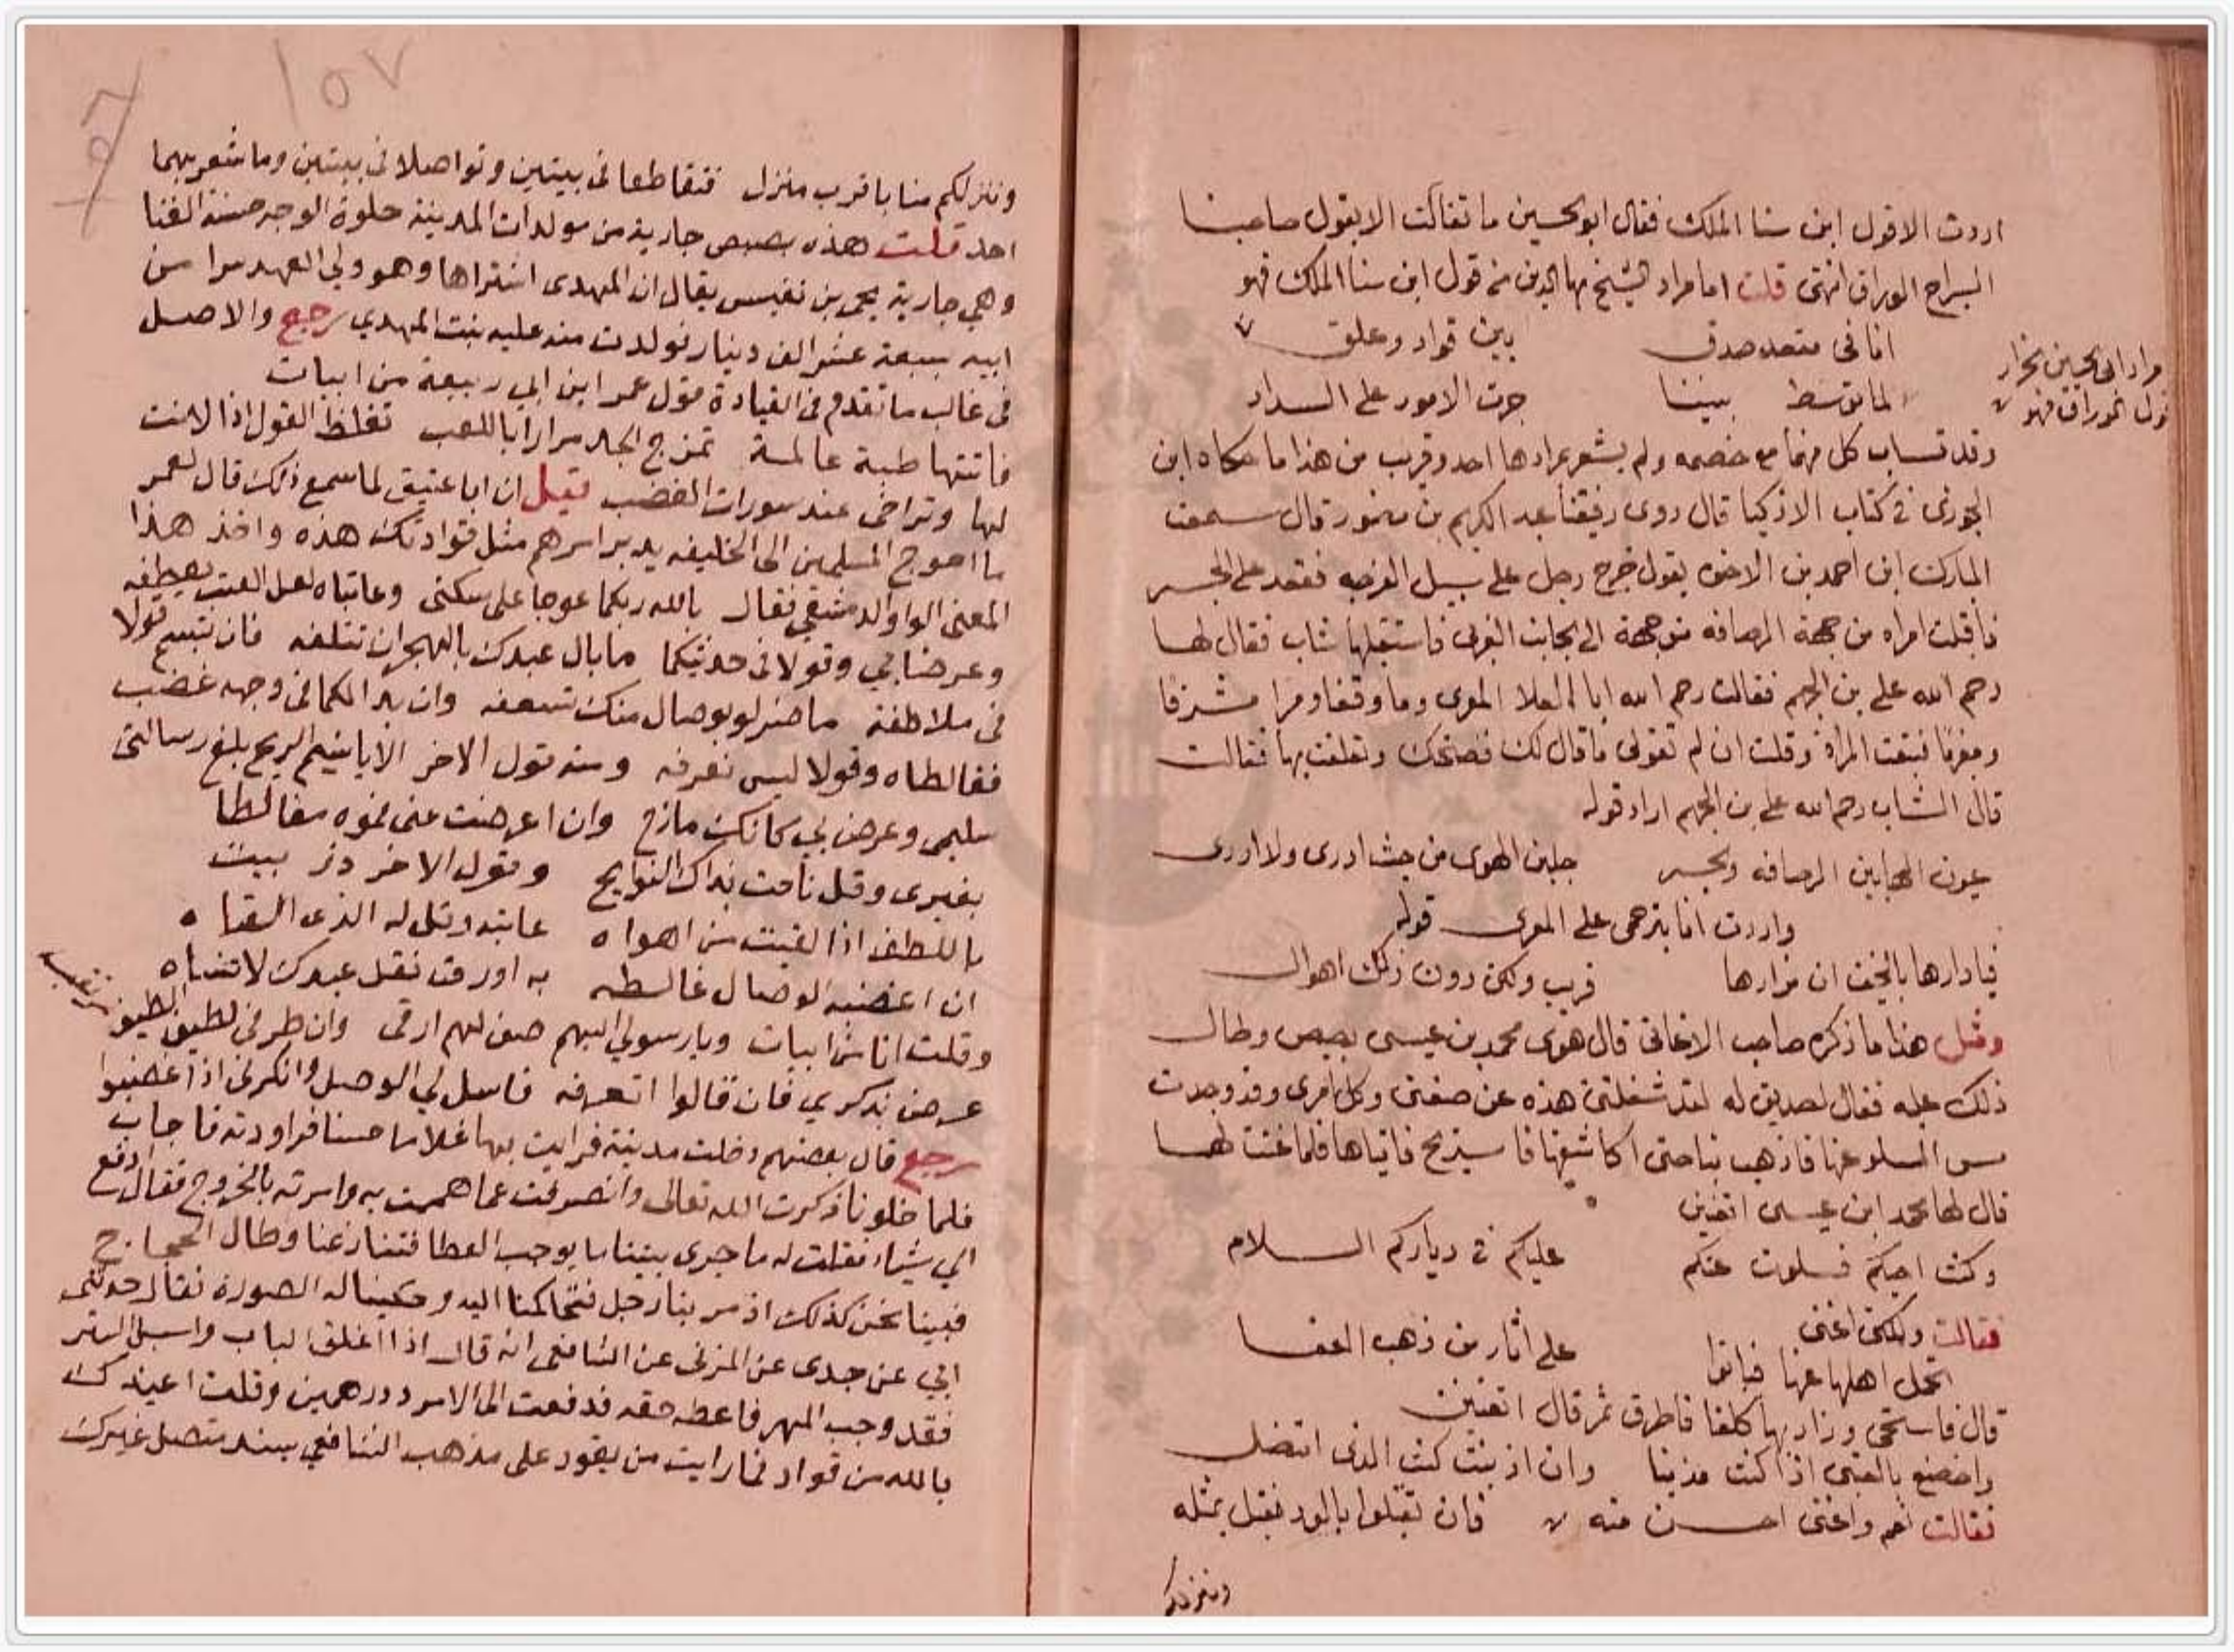 اردت الا قول ابن سنا الملك فقال ابو الحسين ما تفاكت الا بقول صاحبنا
السراج الوراق انتهى قلت اما مراد الشيخ بها الدين من قول ابن سنا الملك فهو
انا فى مقعد صدق بين قواد وعلق
مراد ابى الحسين الجزار
قول الوراق فهو
لما توسط بيننا جرت الامور على السداد
وقد تساب كل منهما مع خصمه ولم يشعر بمرادها احد وقريب من هذا ما حكاه ابن
الجوزى فى كتاب الاذكيا قال روى رفيقنا عبد الكريم بن منصور قال سمعت
المبارك ابن احمد بن الاخوه يقول خرج رجل على سبيل الفرجه فقعد على الجسر
فاقبلت امراه من جهة الرصافه متوجهة الى الجانب الغربى فاستقبلها شاب فقال لها
رحم الله على بن الجهم فقالت رحم الله ابا العلا المعرى وما وقفا ومرا مشرقا
ومغربا فتبعت المراة وقلت ان لم تقولى ما قال لك فضحتك وتعلقت بها فقالت
قال الشاب رحم الله على بن الجهم اراد قوله
عيون المها بين الرصافه والجسر جلبن الهوى من حيث ادرى ولا ادرى
واردت انا بترحمى على المعرى قوله
فيا دارها بالخيف ان مزارها قريب ولكن دون ذلك اهوال
ومثل هذا ما ذكره صاحب الاغانى قال هوى محمد بن عيسى بصبص وطال
ذلك عليه فقال لصديق له لقد شغلتنى هذه عن صنعتى وكل امرى وقد وجدت
مس السلو عنها فاذهب بنا حتى اكاشفها فاستريح فاتياها فلما غنت لهما
قال لها محمد ابن عيسى اتغنين
وكنت احبكم فسلوت عنكم عليكم فى دياركم السلام
فقالت ولكنى اغنى
تحمل اهلها عنها فبانوا على اثار من ذهب العفا
قال فاستحى وزاد بها كلفا فاطرق ثم قال اتغنين
واخضع بالعتبى اذا كنت مذنبا وان اذنبت كنت الذى اتنصل
فقالت نعم واغنى احسن منه فان تقبلوا بالود نقبل بمثله
وننزلكم
١٥٧
وننزلكم منا باقرب منزل فتقاطعا فى بيتين وتواصلا فى بيتين وما شعر بهما
احد قلت هذه بصبص جارية من مولدات المدينة حلوة الوجه حسنة الغنا
وهي جارية يحى بن نفيس يقال ان المهدى اشتراها وهو ولي العهد سرا من
ابيه بسبعة عشر الف دينار فولدت منه عليه بنت المهدي رجع والاصل
فى غالب ما تقدم فى القيادة قول عمر ابن ابي ربيعة من ابيات
فاتتها طبة عالمة تمزج الجد مرارا باللعب تغلظ القول اذا لانت
لها وتراخى عند سورات الغضب فقيل ان ابا عتيق لما سمع ذلك قال لعمر
ما احوج المسلمين الى الخليفه يدبر امرهم مثل قوادتك هذه واخذ هذا
المعنى الواوا الدمشقي فقال بالله ربكما عوجا على سكنى وعاتباه لعل العتب يعطفه
وعرضا بي وقولا فى حديثكما ما بال عبدك بالهجران تتلفه فان تبسم قولا
فى ملاطفة ما ضر لو بوصال منك تسعفه وان بدا لكما فى وجهه غضب
فغالطاه وقولا ليس نعرفه ومنه قول الاخر الا يا نسيم الريح بلغ رسالتى
سليمى وعرض بي كانك مازح وان اعرضت عنى فموه مغالطا
بغيرى وقل ناحت بذاك النوايح وقول الاخر دز بيت
باللطف اذا لقيت من اهواه عاتبه وقل له الذى القاه
ان اغضبه الوصال غالطه به او رق فقل عبدك لا تنساه
وقلت انا من ابيات ويا رسولي اليهم صف لهم ارقى وان طرفى لطيف الطيف
عرض بذكري فان قالوا اتعرفه فاسل لي الوصل وانكرنى اذا غضبوا
رجع قال بعضهم دخلت مدينة فرايت بها غلاما حسنا فراودته فاجاب
فلما خلونا ذكرت الله تعالى وانصرفت عما هممت به وامرته بالخروج فقال ادفع
الي شياء فقلت له ما جرى بيننا ما يوجب العطا فتنازعنا وطال الحجاج
فبينا نحن كذلك اذ مر بنا رجل فتحاكمنا اليه وحكينا له الصورة فقال حدثنى
ابي عن جدى عن المزنى عن الشافعى انه قال اذا اغلق الباب واسبل الستر
فقد وجب المهر فاعطه حقه فدفعت الى الامرد درهمين وقلت اعيذك
بالله من قواد فما رايت من يقود على مذهب الشافعي بسند متصل غيرك